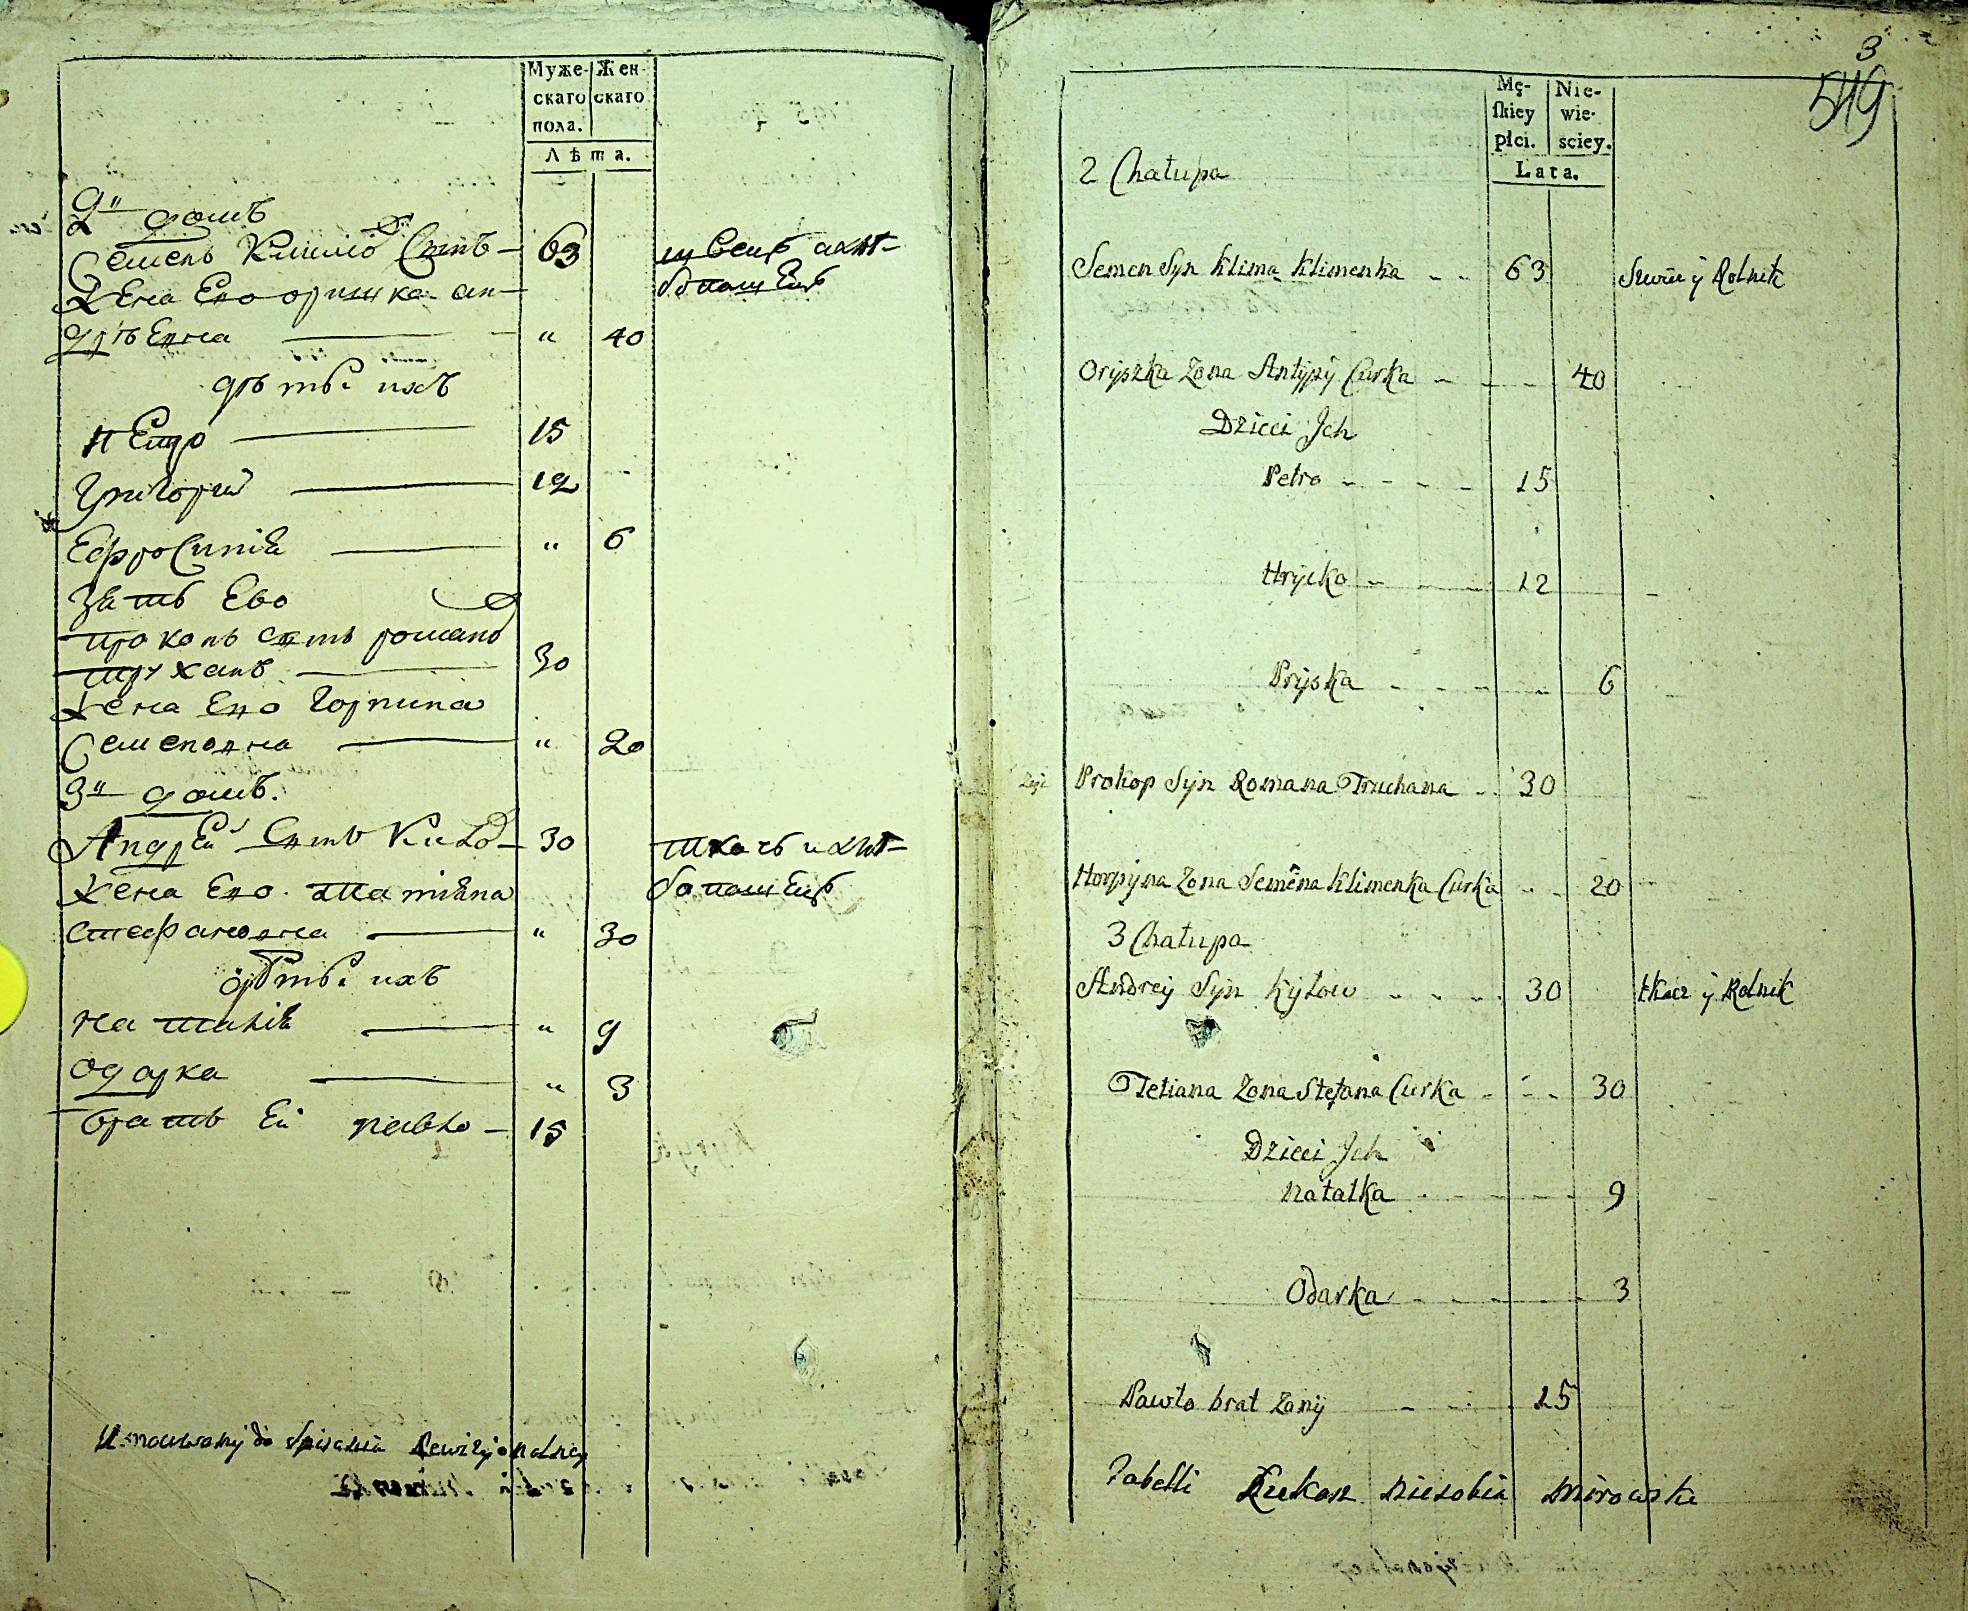 Муже- Жен-
скаго скаго
пола.
Лѣта.
2й домъ
Семенъ Климо Сынъ 63 швецъ ихлѣ-
Жена Его оришка ан- бопашецъ
" 40
дѣти ихъ
Петро 15
Григорий 12
Ефросиния " 6
Зять Ево
прокопъ сынъ романо
труханъ 30
Жена Его Горпина
Семеновна " 20
3й домъ.
Андрей Сынъ Кило 30 ткачъ ихлѣ-
Жена Его татияна бопашецъ
стефановна " 30
дѣти ихъ
Наталия " 9
Одарка " 3
братъ Ей павло 15
do Spisania Rewizyonalney
3
519
Mę- Nie-
ſkiey wie-
płci. sciey.
Lata.
2 Chałupa
Semen Syn Klima Klimenka 63 Szwiec y Rolnik
Oryszka Zona Antypy Curka 40
Dzieci Jch
Petro 15
Hrycko 12
Pryska 6
Prokop Syn Romana Truchana 30
Horpyna Zona Semena Klimenka Curka 20
3 Chałupa
Andrey Syn Kyłow 30 tkacz y Rolnik
Tetiana Zona Stefana Curka 30
Dzieci Jch
Natalka 9
Odarka 3
Pawło brat Zony 15
Tabelli Łukasz